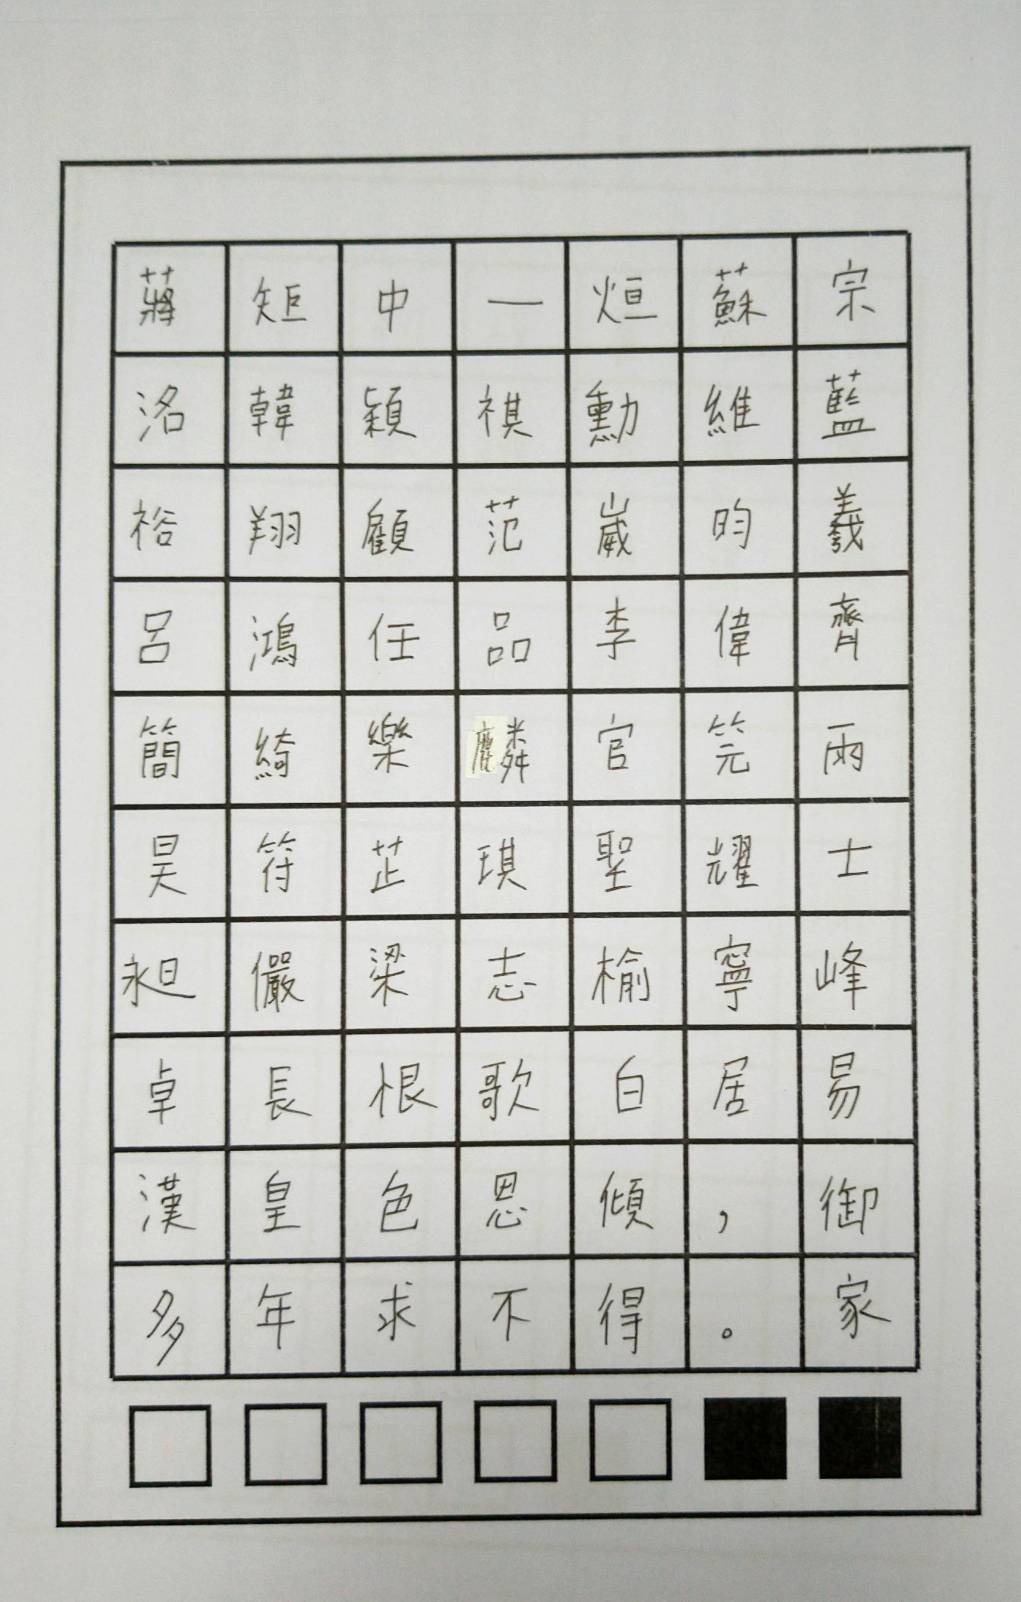 蔣矩中一烜蘇宗
洺韓穎祺勳維藍
裕翔顧范崴昀羲
呂鴻任品李偉齊
簡綺樂麟官筦雨
昊符芷琪聖耀士
昶儼梁志榆寧峰
卓長恨歌白居易
漢皇色恩傾，御
多年求不得。家